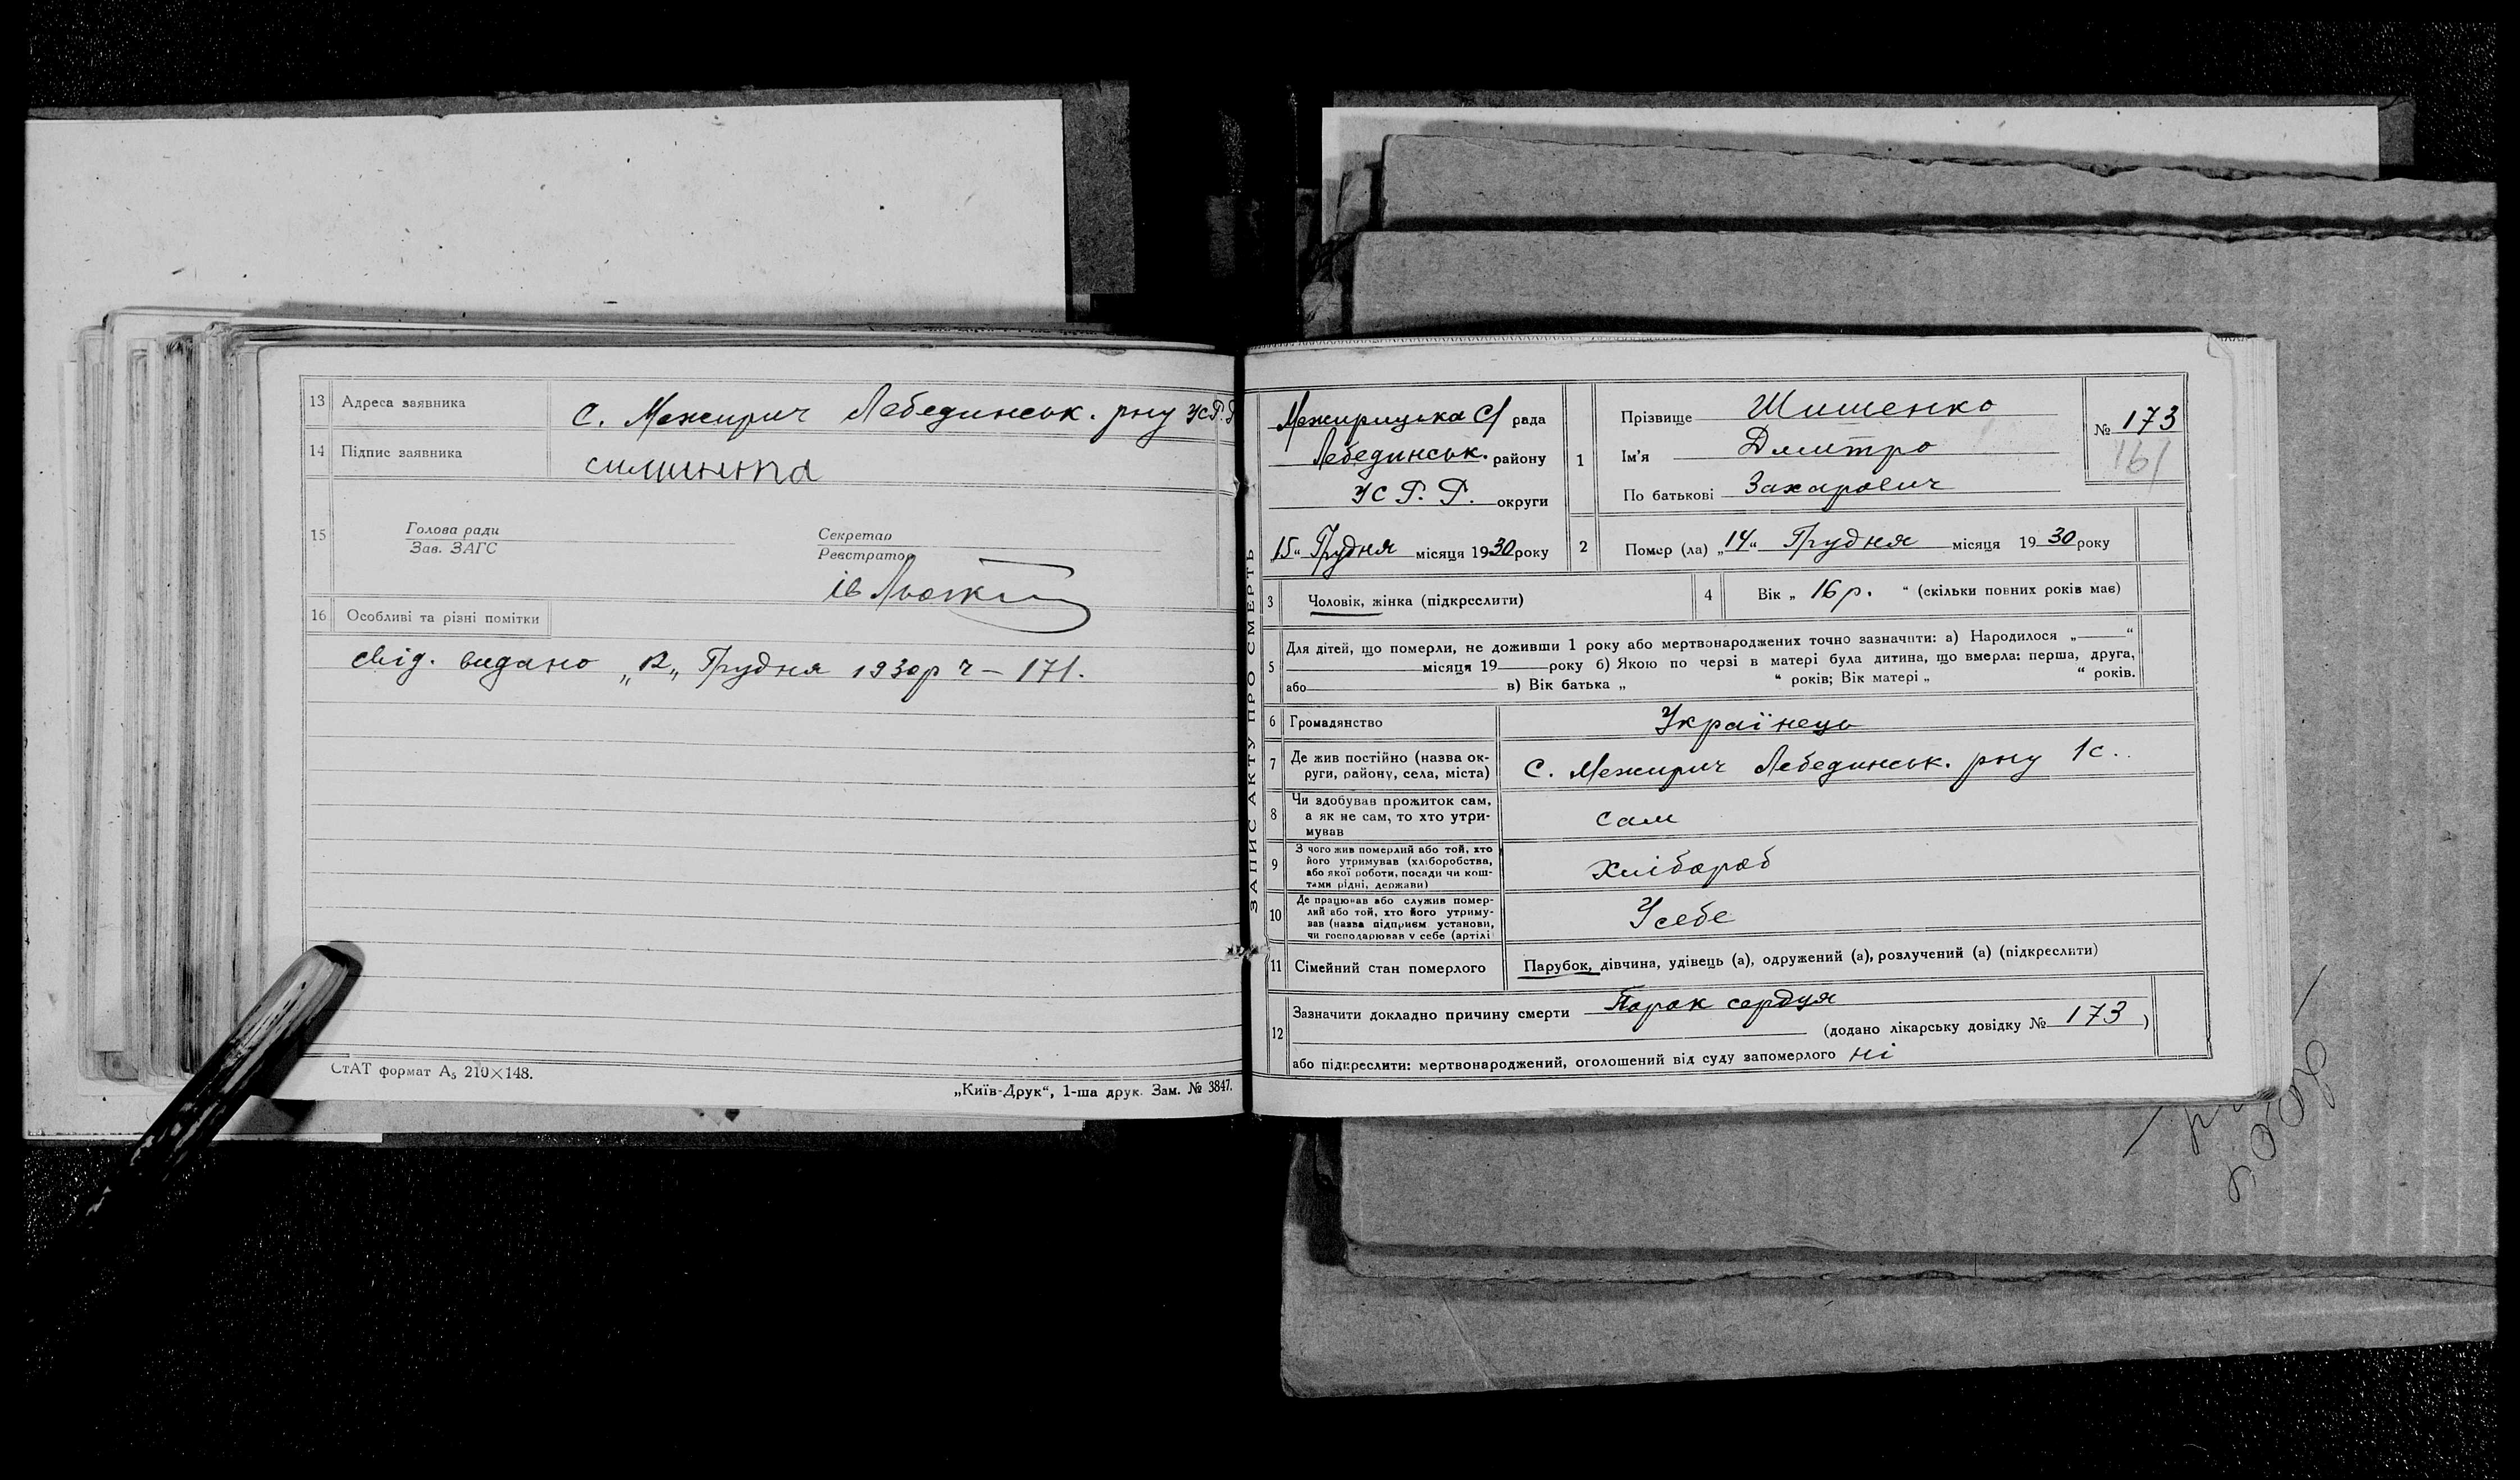 13 Адреса заявника С. Межирич Лебединськ. рну УСРР
14 Підпис заявника
15 Голова ради
Зав. ЗАГС
Секретар
Реєстратор
16 Особливі та різні помітки
свід. видано „12„ Грудня 1930р ч – 171.
СтАТ формат А₅ 210×148.
„Київ-Друк“, 1-ша друк. Зам. № 3847.
ЗАПИС АКТУ ПРО СМЕРТЬ
Межирицька С/ рада
Лебединськ. району
УСРР. округи
„15“ Грудня місяця 1930 року
1 Прізвище Шишенко
Ім'я Дмитро
По батькові Захарович
№ 173
161
2 Помер (ла) „14“ Грудня місяця 1930 року
3 Чоловік, жінка (підкреслити)
4 Вік „ 16 р. “ (скільки повних років має)
5 Для дітей, що померли, не доживши 1 року або мертвонароджених точно зазначити: а) Народилося „ “
місяця 19 року б) Якою по черзі в матері була дитина, що вмерла: перша, друга,
або в) Вік батька „ “ років; Вік матері „ “ років.
6 Громадянство Українець
7 Де жив постійно (назва ок-
руги, району, села, міста) С. Межирич Лебединськ. рну 1с.
8 Чи здобував прожиток сам,
а як не сам, то хто утри-
мував сам
9 З чого жив померлий або той, хто
його утримував (хліборобства,
або якої роботи, посади чи кош-
тами рідні, держави) Хлібороб
10 Де працював або служив помер-
лий або той, хто його утриму-
вав (назва підприєм установи,
чи господарював у себе (артілі Усебе
11 Сімейний стан померлого Парубок, дівчина, удівець (а), одружений (а), розлучений (а) (підкреслити)
12 Зазначити докладно причину смерти Порок сердця
(додано лікарську довідку № 173 )
або підкреслити: мертвонароджений, оголошений від суду запомерлого ні